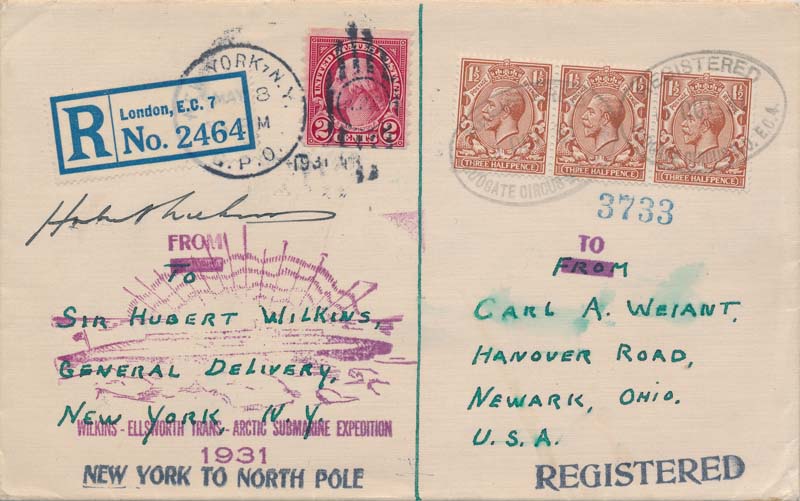 NEW YORK, N.Y.
G.P.O.
1931
R
London, E.C. 7
No. 2464
UNITED STATES POSTAGE
2 CENTS 2
1½ 1½
THREE HALFPENCE
1½ 1½
THREE HALFPENCE
1½ 1½
THREE HALFPENCE
REGISTERED
LUDGATE CIRCUS
REGISTERED
B.O. E.C.4.
3733
FROM
To
Sir Hubert Wilkins,
General Delivery,
New York, N.Y
WILKINS - ELLSWORTH TRANS - ARCTIC SUBMARINE EXPEDITION
1931
NEW YORK TO NORTH POLE
TO
From
Carl A. Weiant,
Hanover Road,
Newark, Ohio.
U.S.A.
REGISTERED